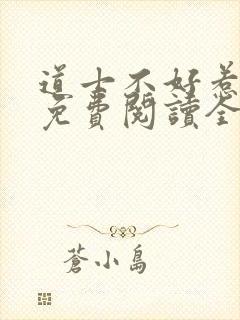 道士不好惹
免費閱讀全
蒼小島